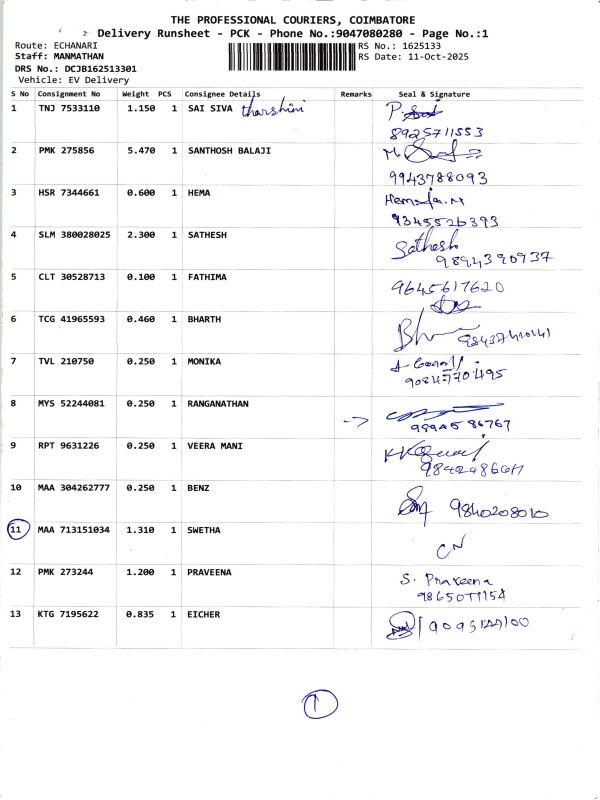 THE PROFESSIONAL COURIERS, COIMBATORE
Delivery Runsheet - PCK - Phone No.:9047080280 - Page No.:1
Route: ECHANARI
RS No.: 1625133
Staff: MANMATHAN
RS Date: 11-Oct-2025
DRS No.: DCJB162513301
Vehicle: EV Delivery
S No Consignment No Weight PCS Consignee Details Remarks Seal & Signature
1 TNJ 7533110 1.150 1 SAI SIVA tharshini
8925711553
2 PMK 275856 5.470 1 SANTHOSH BALAJI
9943788093
3 HSR 7344661 0.600 1 HEMA
9345526393
4 SLM 380028025 2.300 1 SATHESH Sathesh
9894390937
5 CLT 30528713 0.100 1 FATHIMA 9645617620
6 TCG 41965593 0.460 1 BHARTH
7 TVL 210750 0.250 1 MONIKA
8 MYS 52244081 0.250 1 RANGANATHAN
9994586767
9 RPT 9631226 0.250 1 VEERA MANI
10 MAA 304262777 0.250 1 BENZ
9840208010
11 MAA 713151034 1.310 1 SWETHA
CN
12 PMK 273244 1.200 1 PRAVEENA S. Praveena
13 KTG 7195622 0.835 1 EICHER
1